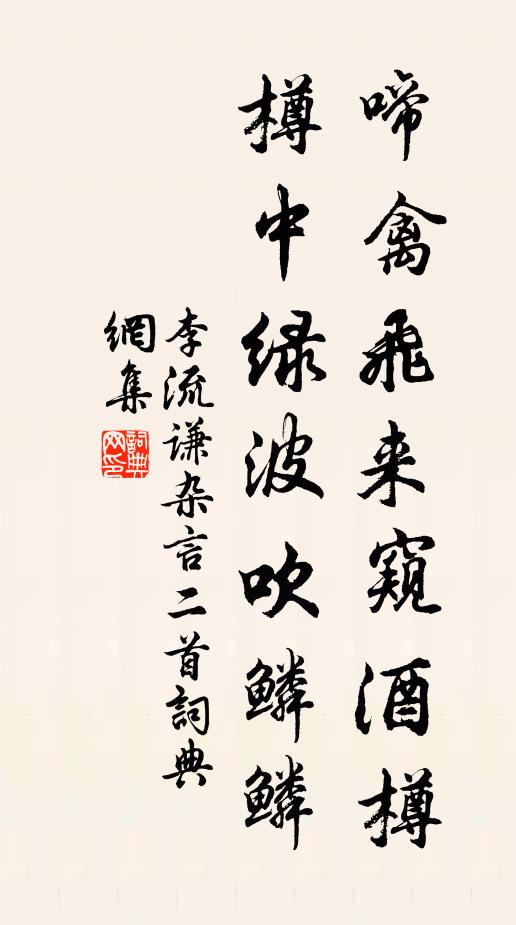 啼禽飛来窺酒樽
樽中緑波吹鱗鱗
李流謙杂言二首詞典
網集
詞典网印